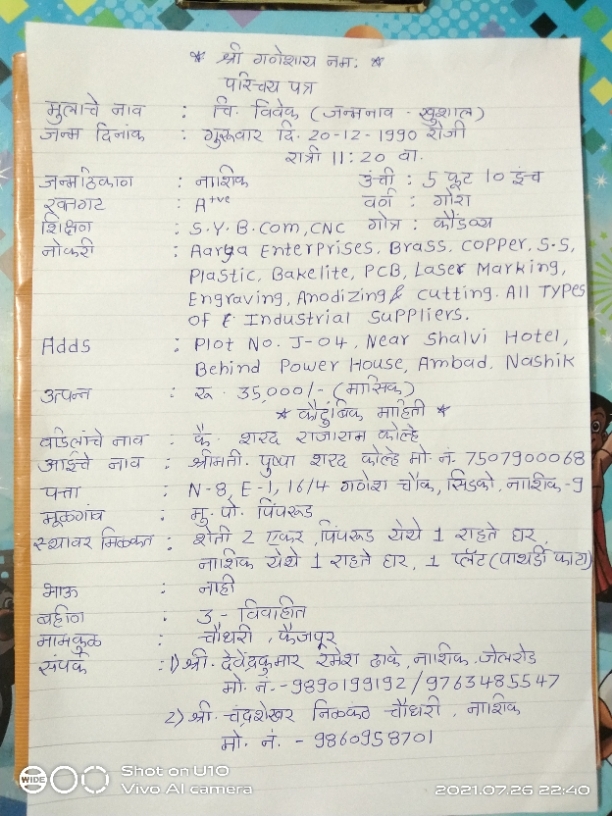 * श्री गणेशाय नमः *
परिचय पत्र
मुलाचे नाव : चि. विवेक (जन्मनाव - खुशाल)
जन्म दिनांक : गुरूवार दि. 20-12-1990 रोजी
रात्री 11:20 वा.
जन्मठिकाण : नाशिक उंची : 5 फूट 10 इंच
रक्तगट : A+ve वर्ण : गोरा
शिक्षण : S.Y.B.Com, CNC गोत्र : कौंडण्य
नोकरी : Aarya Enterprises, Brass, Copper, S.S,
Plastic, Bakelite, PCB, Laser Marking,
Engraving, Anodizing & Cutting. All Types
Of Industrial Suppliers.
Adds : Plot No. J-04, Near Shalvi Hotel,
Behind Power House, Ambad, Nashik
उत्पन्न : रू. 35,000/- (मासिक)
* कौटुंबिक माहिती *
वडिलांचे नाव : कै. शरद राजाराम कोल्हे
आईचे नाव : श्रीमती. पुष्पा शरद कोल्हे मो. नं. 7507900068
पत्ता : N-8, E-1, 16/4 गणेश चौक, सिडको, नाशिक-9
मूळगांव : मु. पो. पिंपरूड
स्थावर मिळकत : शेती 2 एकर, पिंपरूड येथे 1 राहते घर,
नाशिक येथे 1 राहते घर, 1 प्लॅट (पाथर्डी फाटा)
भाऊ : नाही
बहीण : 3 - विवाहीत
मामकुळ : चौधरी, फैजपूर
संपर्क : 1) श्री. देवेंद्रकुमार रमेश ढाके, नाशिक, जेलरोड
मो. नं. - 9890199192 / 9763485547
2) श्री. चंद्रशेखर निळकंठ चौधरी, नाशिक
मो. नं. - 9860958701
WIDE Shot on U10
Vivo AI camera 2021.07.26 22:40